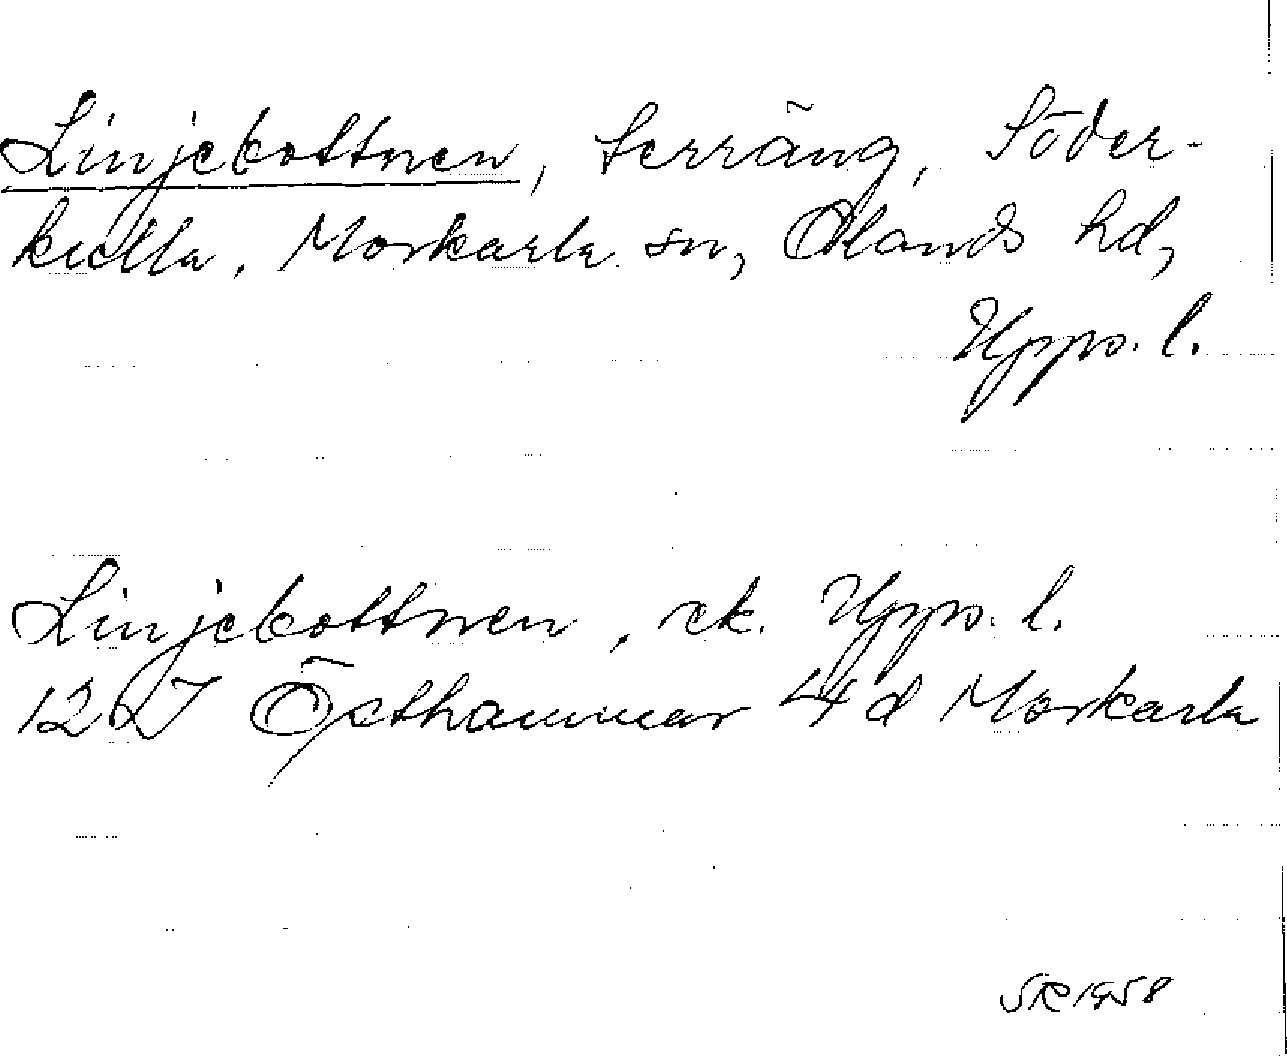 Linjebottnen, terräng, Söder-
kulla, Morkarla sn, Olands hd,
Upps. l.
Linjebottnen, ek. Upps. l.
12 I Östhammar 4 d Morkarla
SR 1958